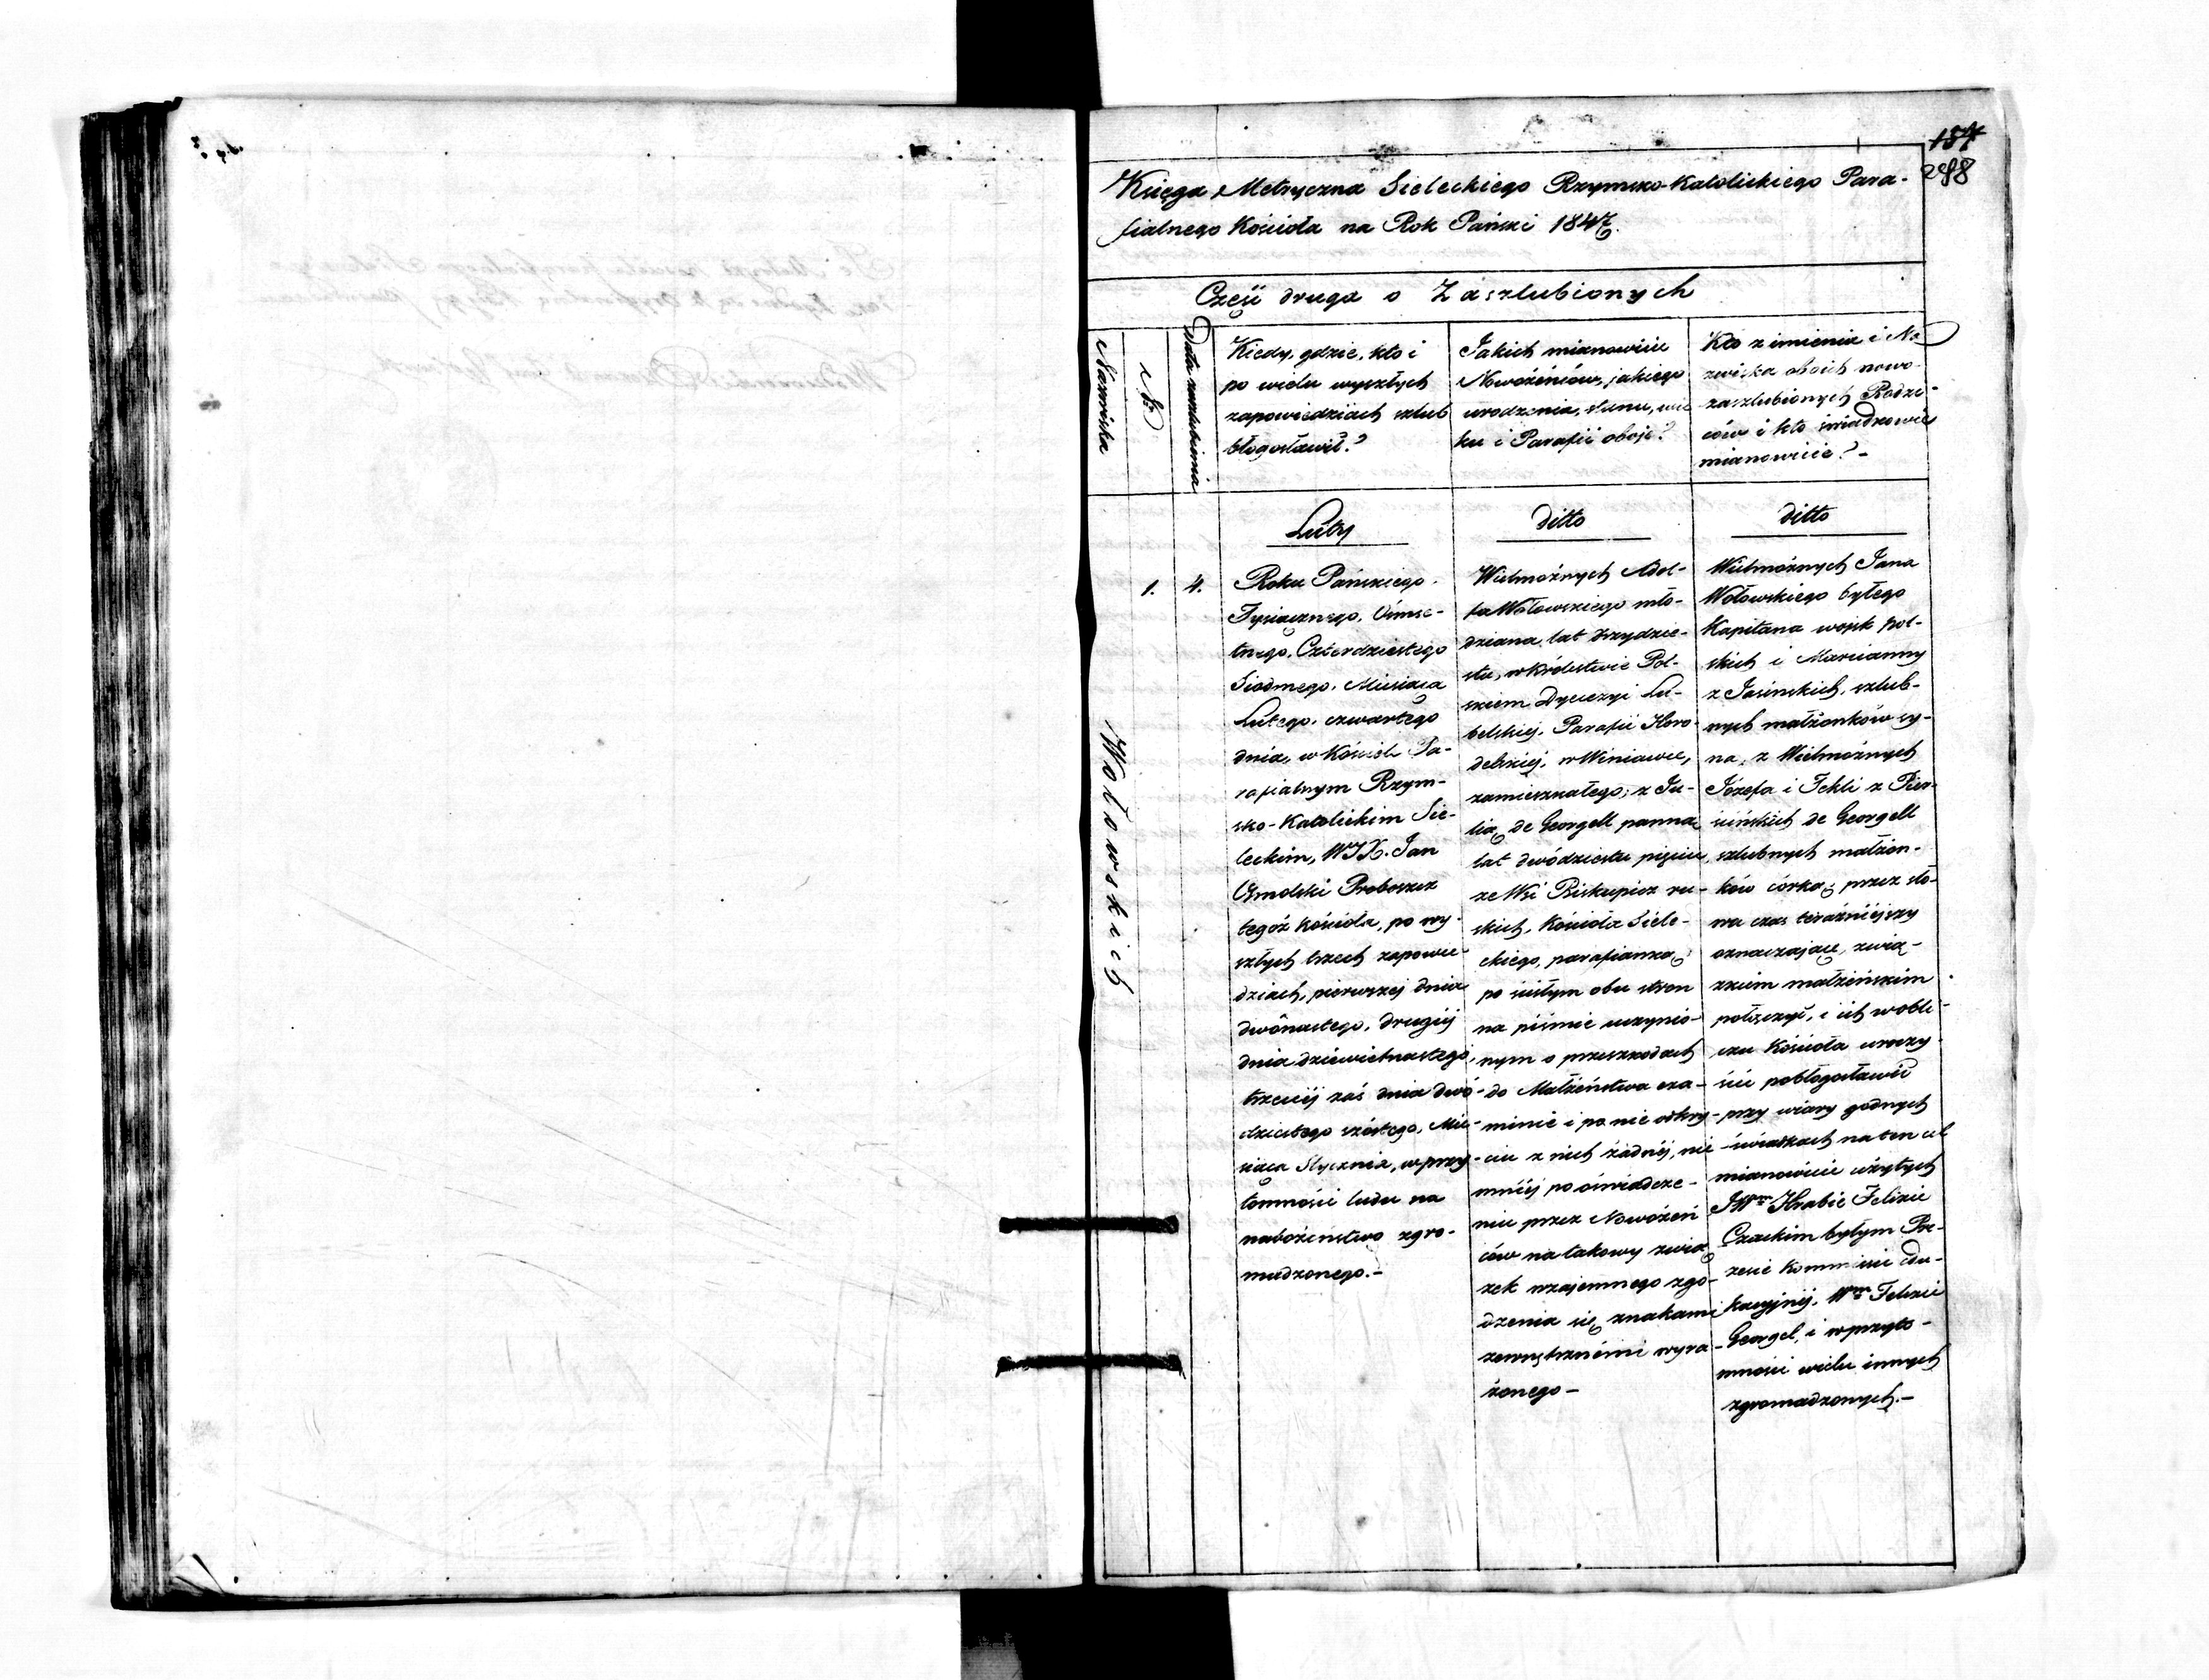 184
298
Księga Metryczna Sieleckiego Rzymsko-Katolickiego Para-
fialnego Kościoła na Rok Pański 1847
Część druga o Zaszlubionych
Nazwiska
N
Data zaszlubienia
Kiedy, gdzie, kto i
po wielu wyszłych
zapowiedziach szlub
błogosławił?
Jakich mianowicie
Nowożeńców, jakiego
urodzenia, stanu, wie
ku i Parafii oboje?
Kto z imienia i Na
zwiska oboich nowo-
zaszlubionych Rodzi-
ców i kto świadkowie
mianowicie? -
Wołowskich
1.
4.
Luty
Roku Pańskiego
Tysiącznego, Ośmse-
tnego, Czterdziestego
Siódmego, Miesiąca
Lutego, czwartego
dnia, w Kościele Pa-
rafialnym Rzym-
sko-Katolickim Sie-
leckim, WJX. Jan
Proboszcz
tegoż Kościoła, po wy-
szłych trzech zapowie-
dziach, pierwszej dnia
dwónastego, drugiéj
dnia dziewietnastego,
trzeciéj zaś dnia dwó-
dziestego szóstego, Mie-
siąca Stycznia, w przy-
tomności ludu na
nabożeństwo zgro-
madzonego.-
ditto
Wielmożnych Adol-
fa Wołowskiego mło-
dziana lat trzydzie-
stu, w Królestwie Pol-
skiem Dyecezyi Lu-
belskiej, Parafii Horo-
delskiéj, w Winiawce,
zamieszkałego; z Ju-
lią de Georgell panną
lat dwódziestu pięciu,
ze Wsi Biskupicz ru-
skich, Kościoła Siele-
ckiego, parafianką;
po ścisłym obu stron
na piśmie uczynio-
nym o przeszkodach
do Małżeństwa exa-
minie i po nie odkry-
ciu z nich żadnéj, nie
mniéj po oświadcze-
niu przez Nowożeń
ców na takowy zwią
zek wzajemnego zgo-
dzenia się znakami
zewnętrznémi wyra-
żonego -
ditto
Wielmożnych Jana
Wołowskiego byłego
Kapitana wojsk pol-
skich i Maryanny
z Jasińskich, szlub-
nych małżonków sy-
na, z Wielmożnych
Józefa i Tekli z
de Georgell
szlubnych małżon-
ków córką; przez sło-
wa czas teraźniéjszy
oznaczające, zwią-
zkiem małżeńskim
połączył, i ich w obli-
czu Kościoła uroczy-
ście pobłogosławił
przy wiary godnych
świadkach na ten cel
mianowicie użytych
JWm Hrabie Felixie
Czackim byłym Pre-
zesie Kommissii Edu-
kacyjnéj, Wm Felixie
Georgel, i w przyto-
mności wielu innych
zgromadzonych.-